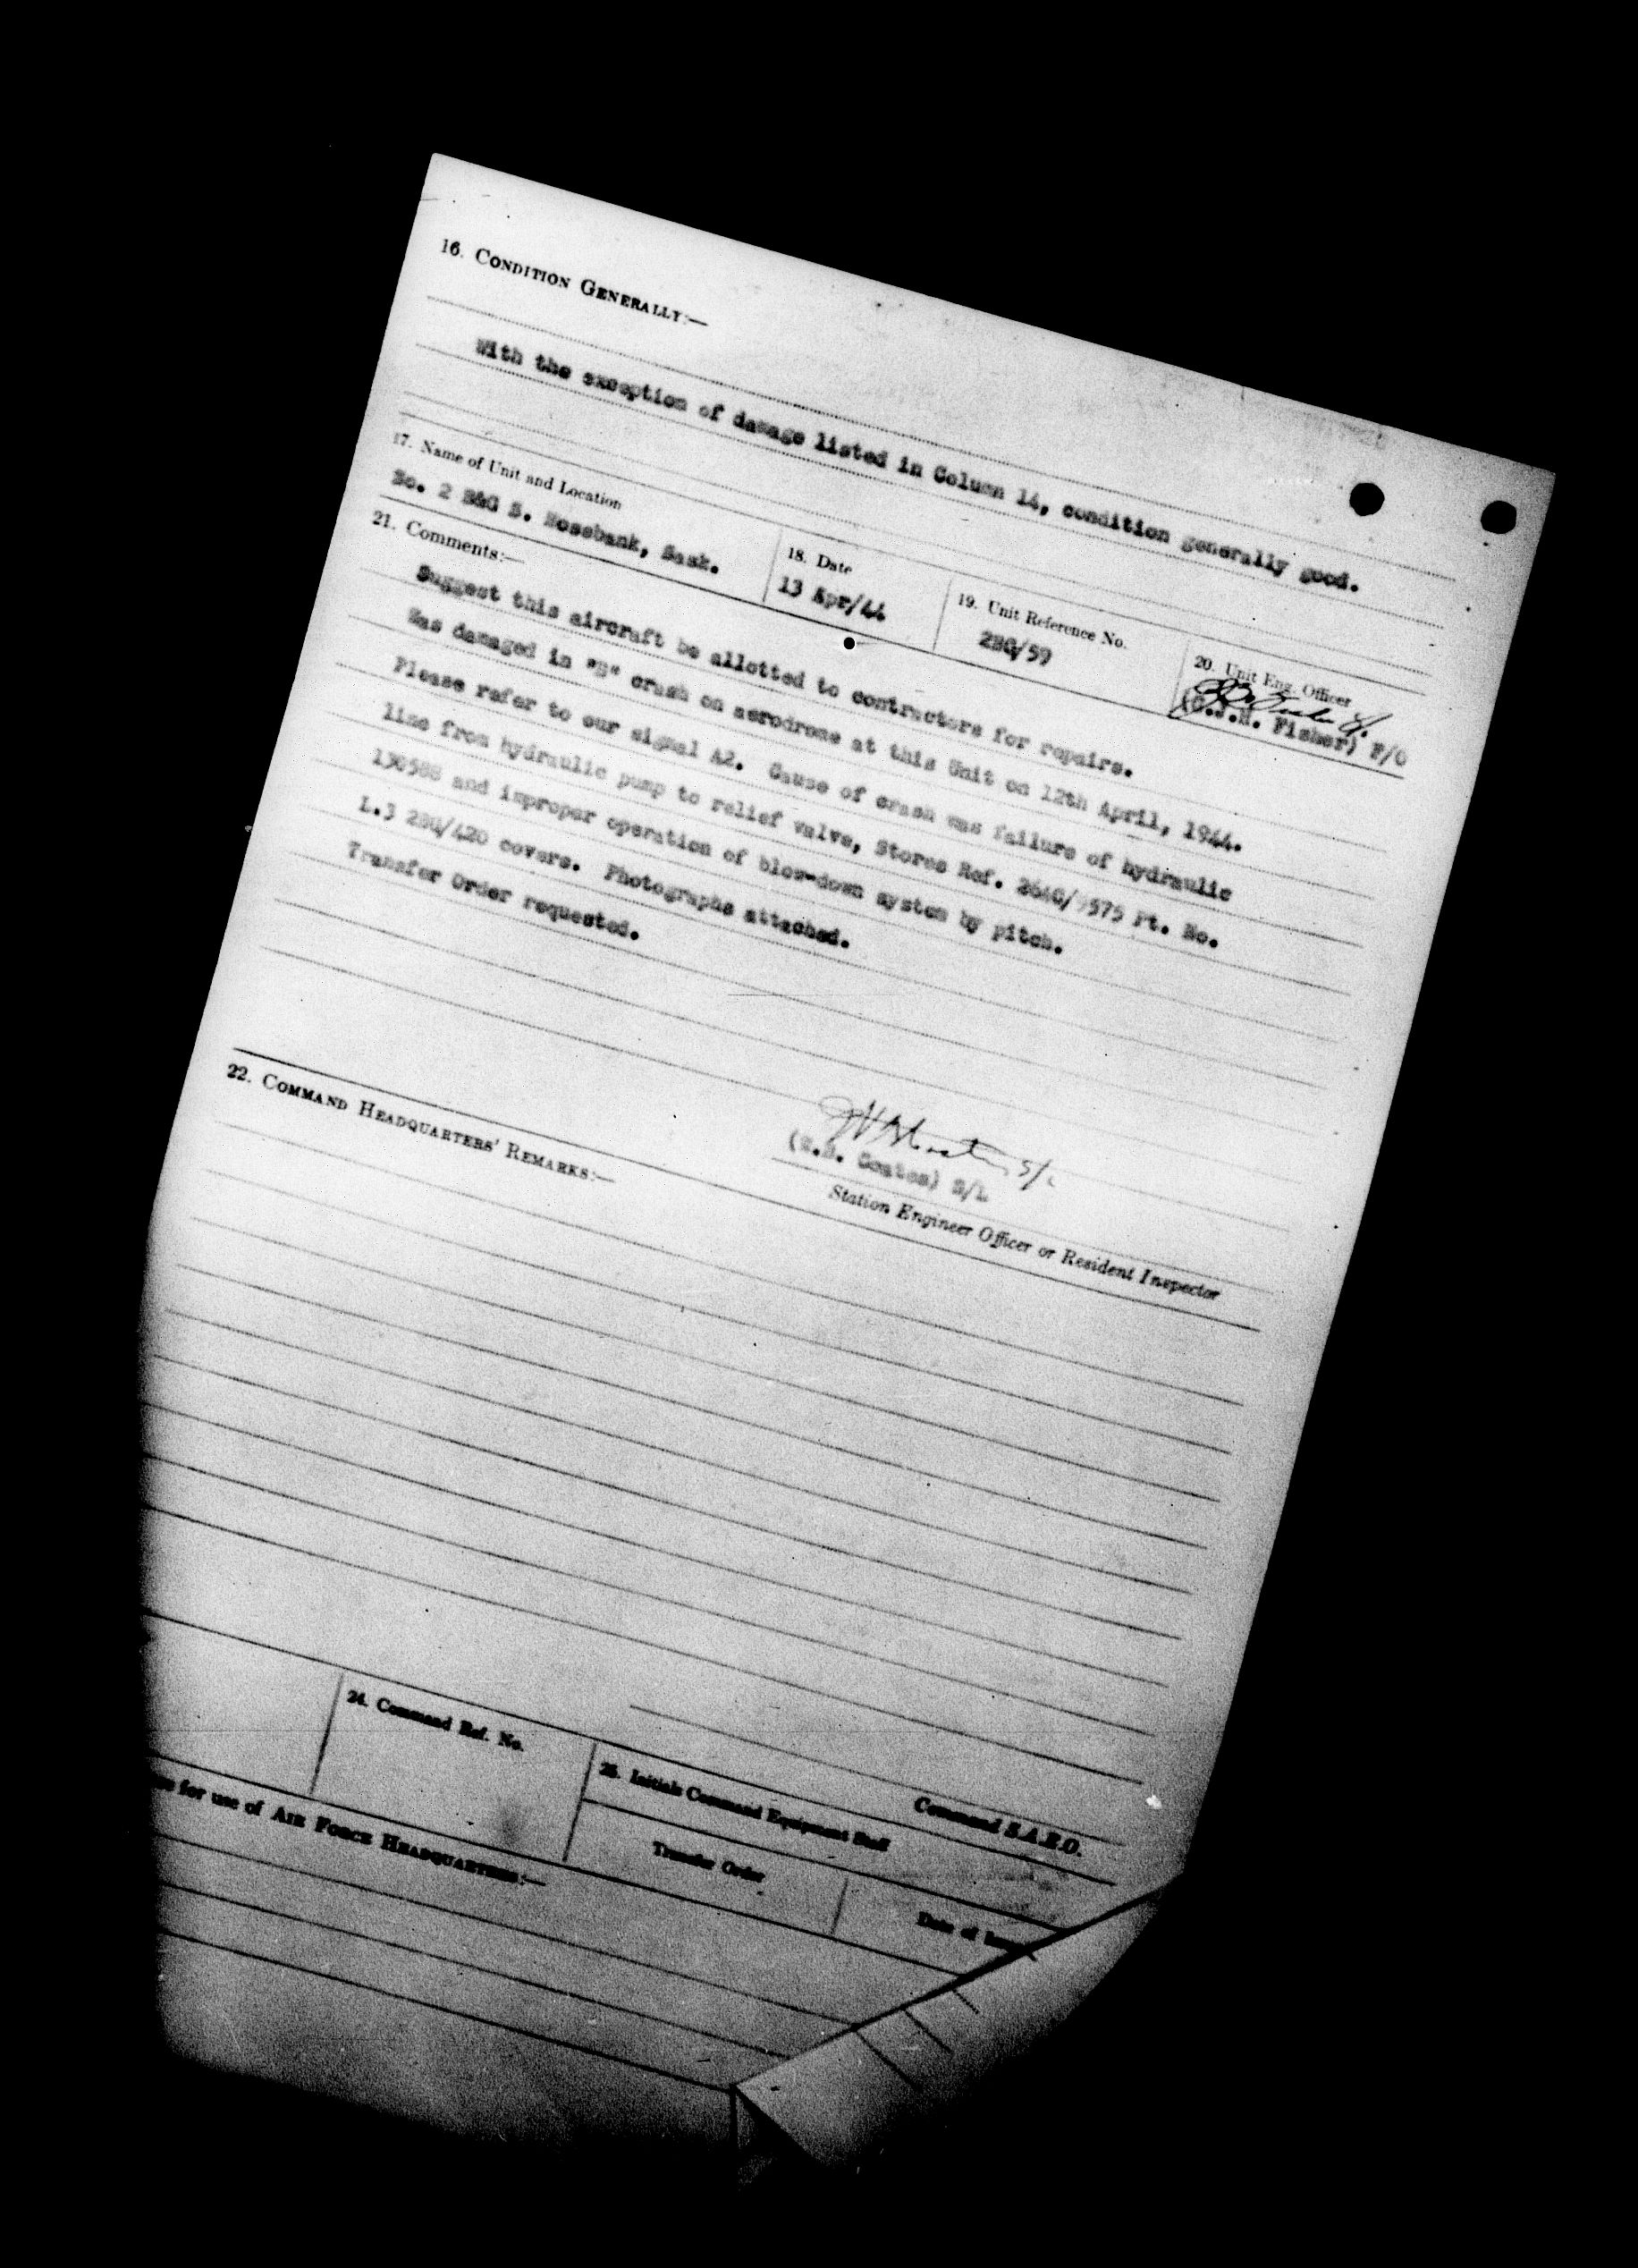 16. CONDITION GENERALLY:—
With the exception of damage listed in Column 14, condition generally good.
17. Name of Unit and Location
No. 2 B&G S. Mossbank, Sask.
18. Date
13 Apr/44
19. Unit Reference No.
2BG/59
20. Unit Eng. Officer
Fisher) F/O
21. Comments:—
Suggest this aircraft be allotted to contractors for repairs.
Was damaged in "B" crash on aerodrome at this Unit on 12th April, 1944.
Please refer to our signal A2. Cause of crash was failure of hydraulic
line from hydraulic pump to relief valve, Stores Ref. Pt. No.
and improper operation of blow-down system by pitch.
L.3 2BG/420 covers. Photographs attached.
Transfer Order requested.
Coates) S/L
Station Engineer Officer or Resident Inspector
22. COMMAND HEADQUARTERS' REMARKS:—
Command S.A.E.O.
24. Command Ref. No.
25. Initials Command Equipment Staff
Transfer Order
Date of
for use of AIR FORCE HEADQUARTERS:—